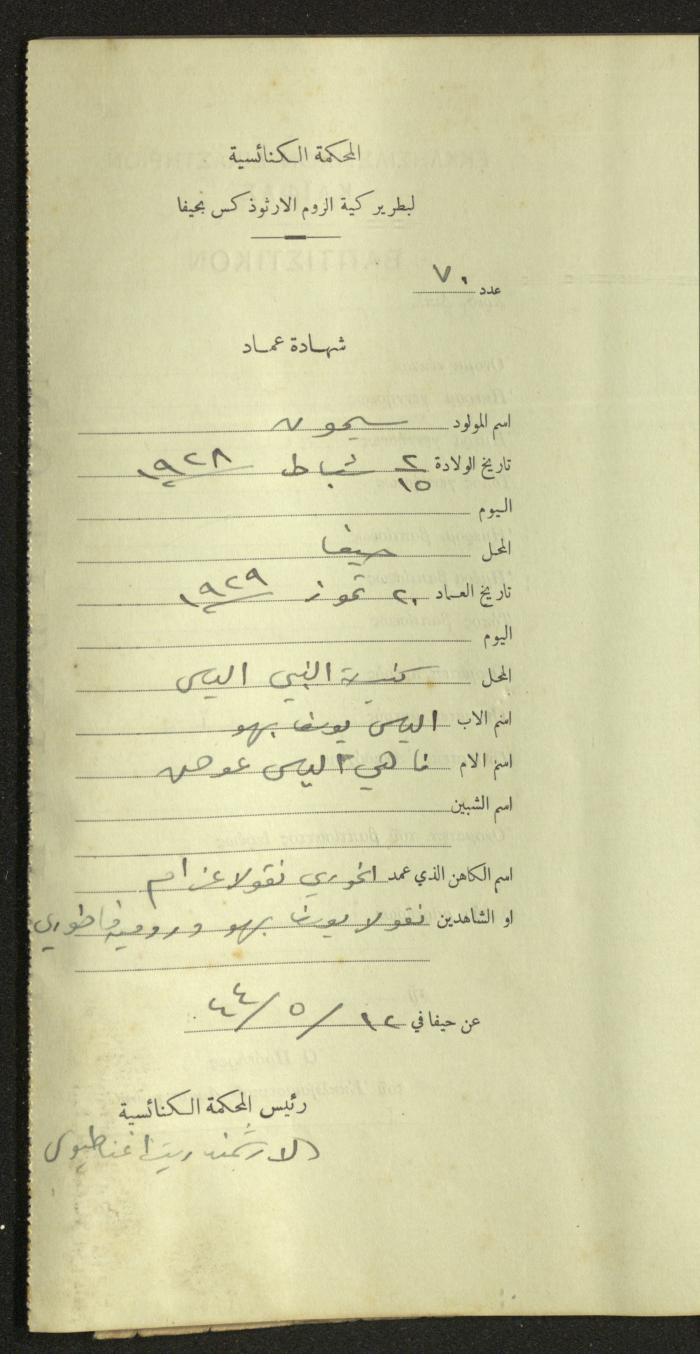 المحكمة الكنائسية
لبطريركية الروم الارثوذكس بحيفا
عدد ٧٠
شهادة عماد
اسم المولود سيمون
تاريخ الولادة ٢/١٥ شباط ١٩٢٨
اليوم
المحل حيفا
تاريخ العماد ٢٠ تموز ١٩٢٩
اليوم
المحل كنيسة النبي الياس
اسم الاب الياس يوسف بهو
اسم الام الياس عوض
اسم الشبين
اسم الكاهن الذي عمد الخوري نقولا عزام
او الشاهدين نقولا يوسف بهو و
عن حيفا في ١٢/٥/٤٤
رئيس المحكمة الكنائسية
الارشمندريت اغناطيوس